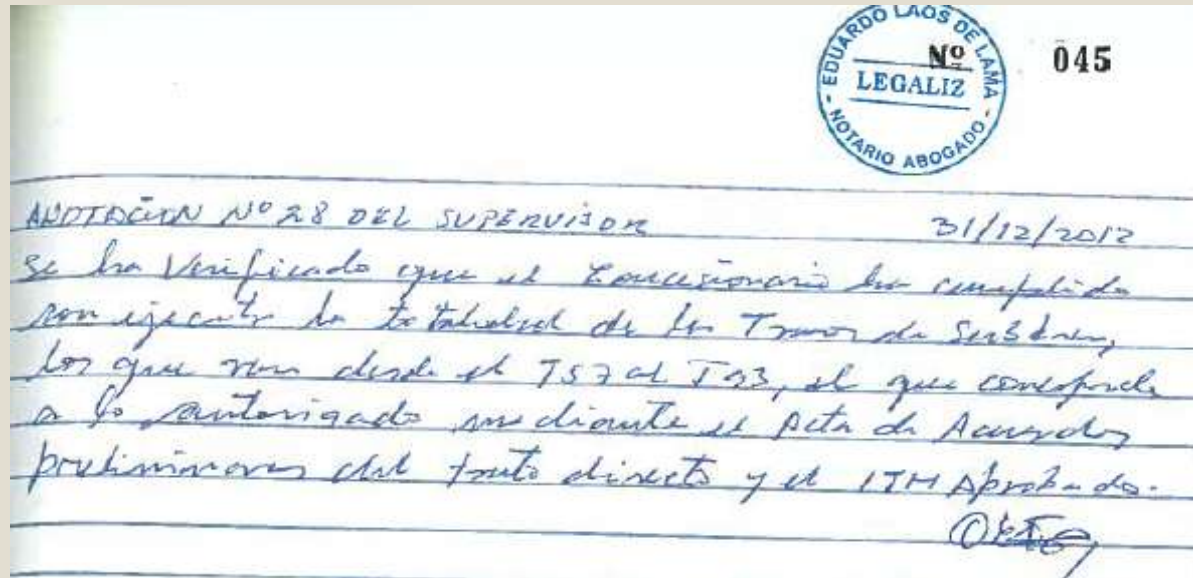 EDUARDO LAOS DE LAMA
Nº 045
LEGALIZ
- NOTARIO ABOGADO -
ANOTACION Nº 28 DEL SUPERVISOR 31/12/2012
se ha Verificado que el Concesionario ha cumplido
con ejecutar la totalidad de los Tramos de Subdren,
los que van desde el T57 al T93, el que corresponde
a lo autorizado mediante el Acta de Acuerdos
preliminares del trato directo y el ITM Aprobado.